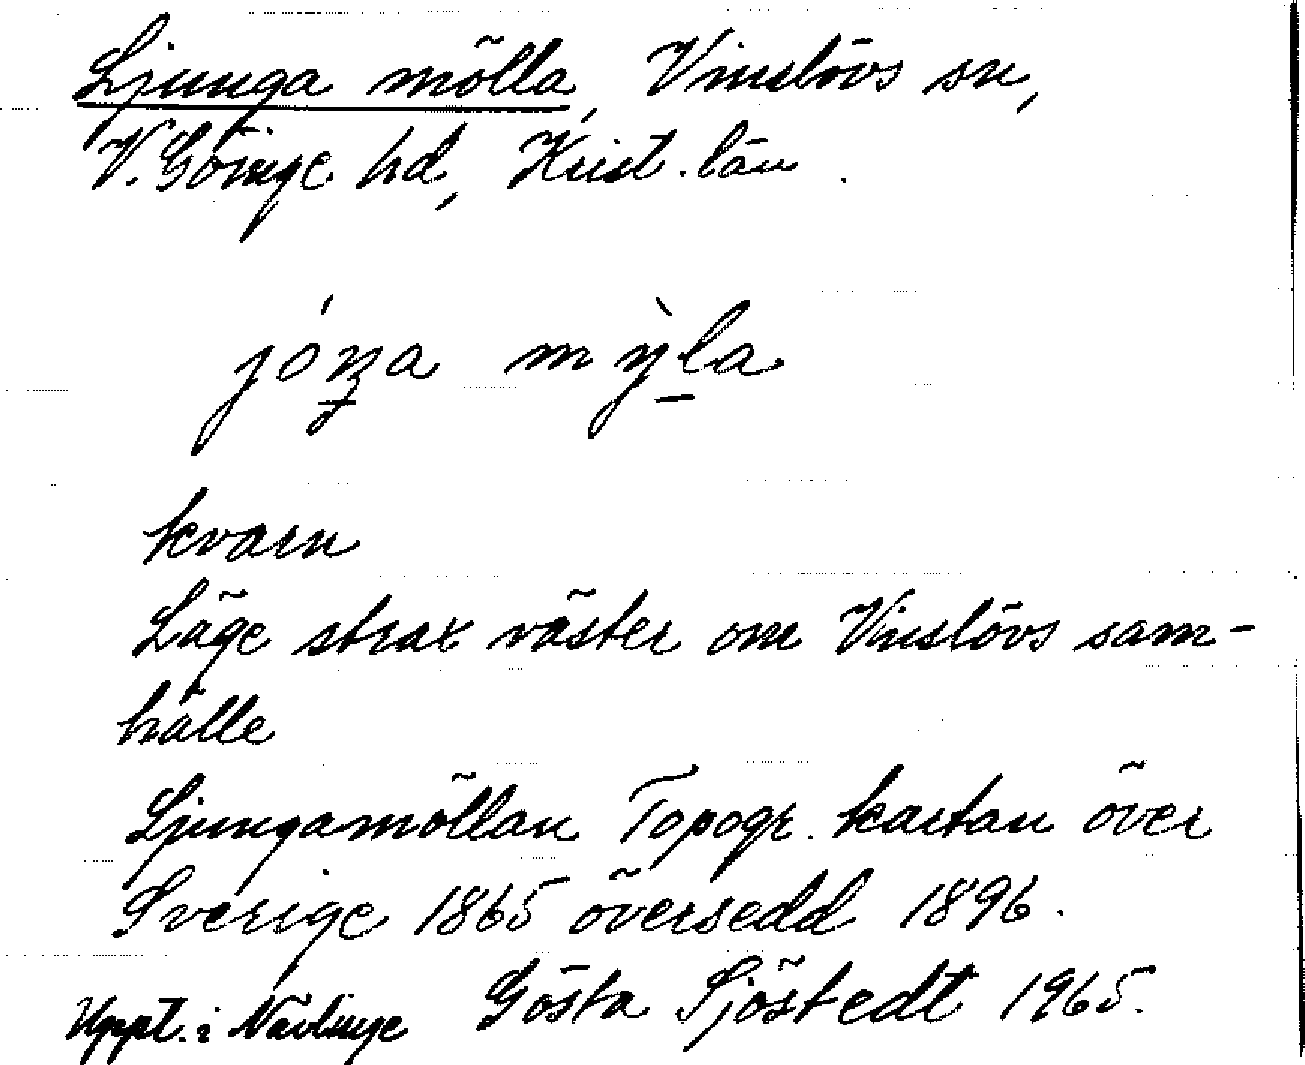 Ljunga mölla, Vinslövs sn,
V. Göinge hd, Krist. län.
kvarn
Läge strax väster om Vinslövs sam-
hälle
Ljungamöllan Topogr. kartan över
Sverige 1865 översedd 1896.
Uppt. i Nävlinge Gösta Sjöstedt 1965.